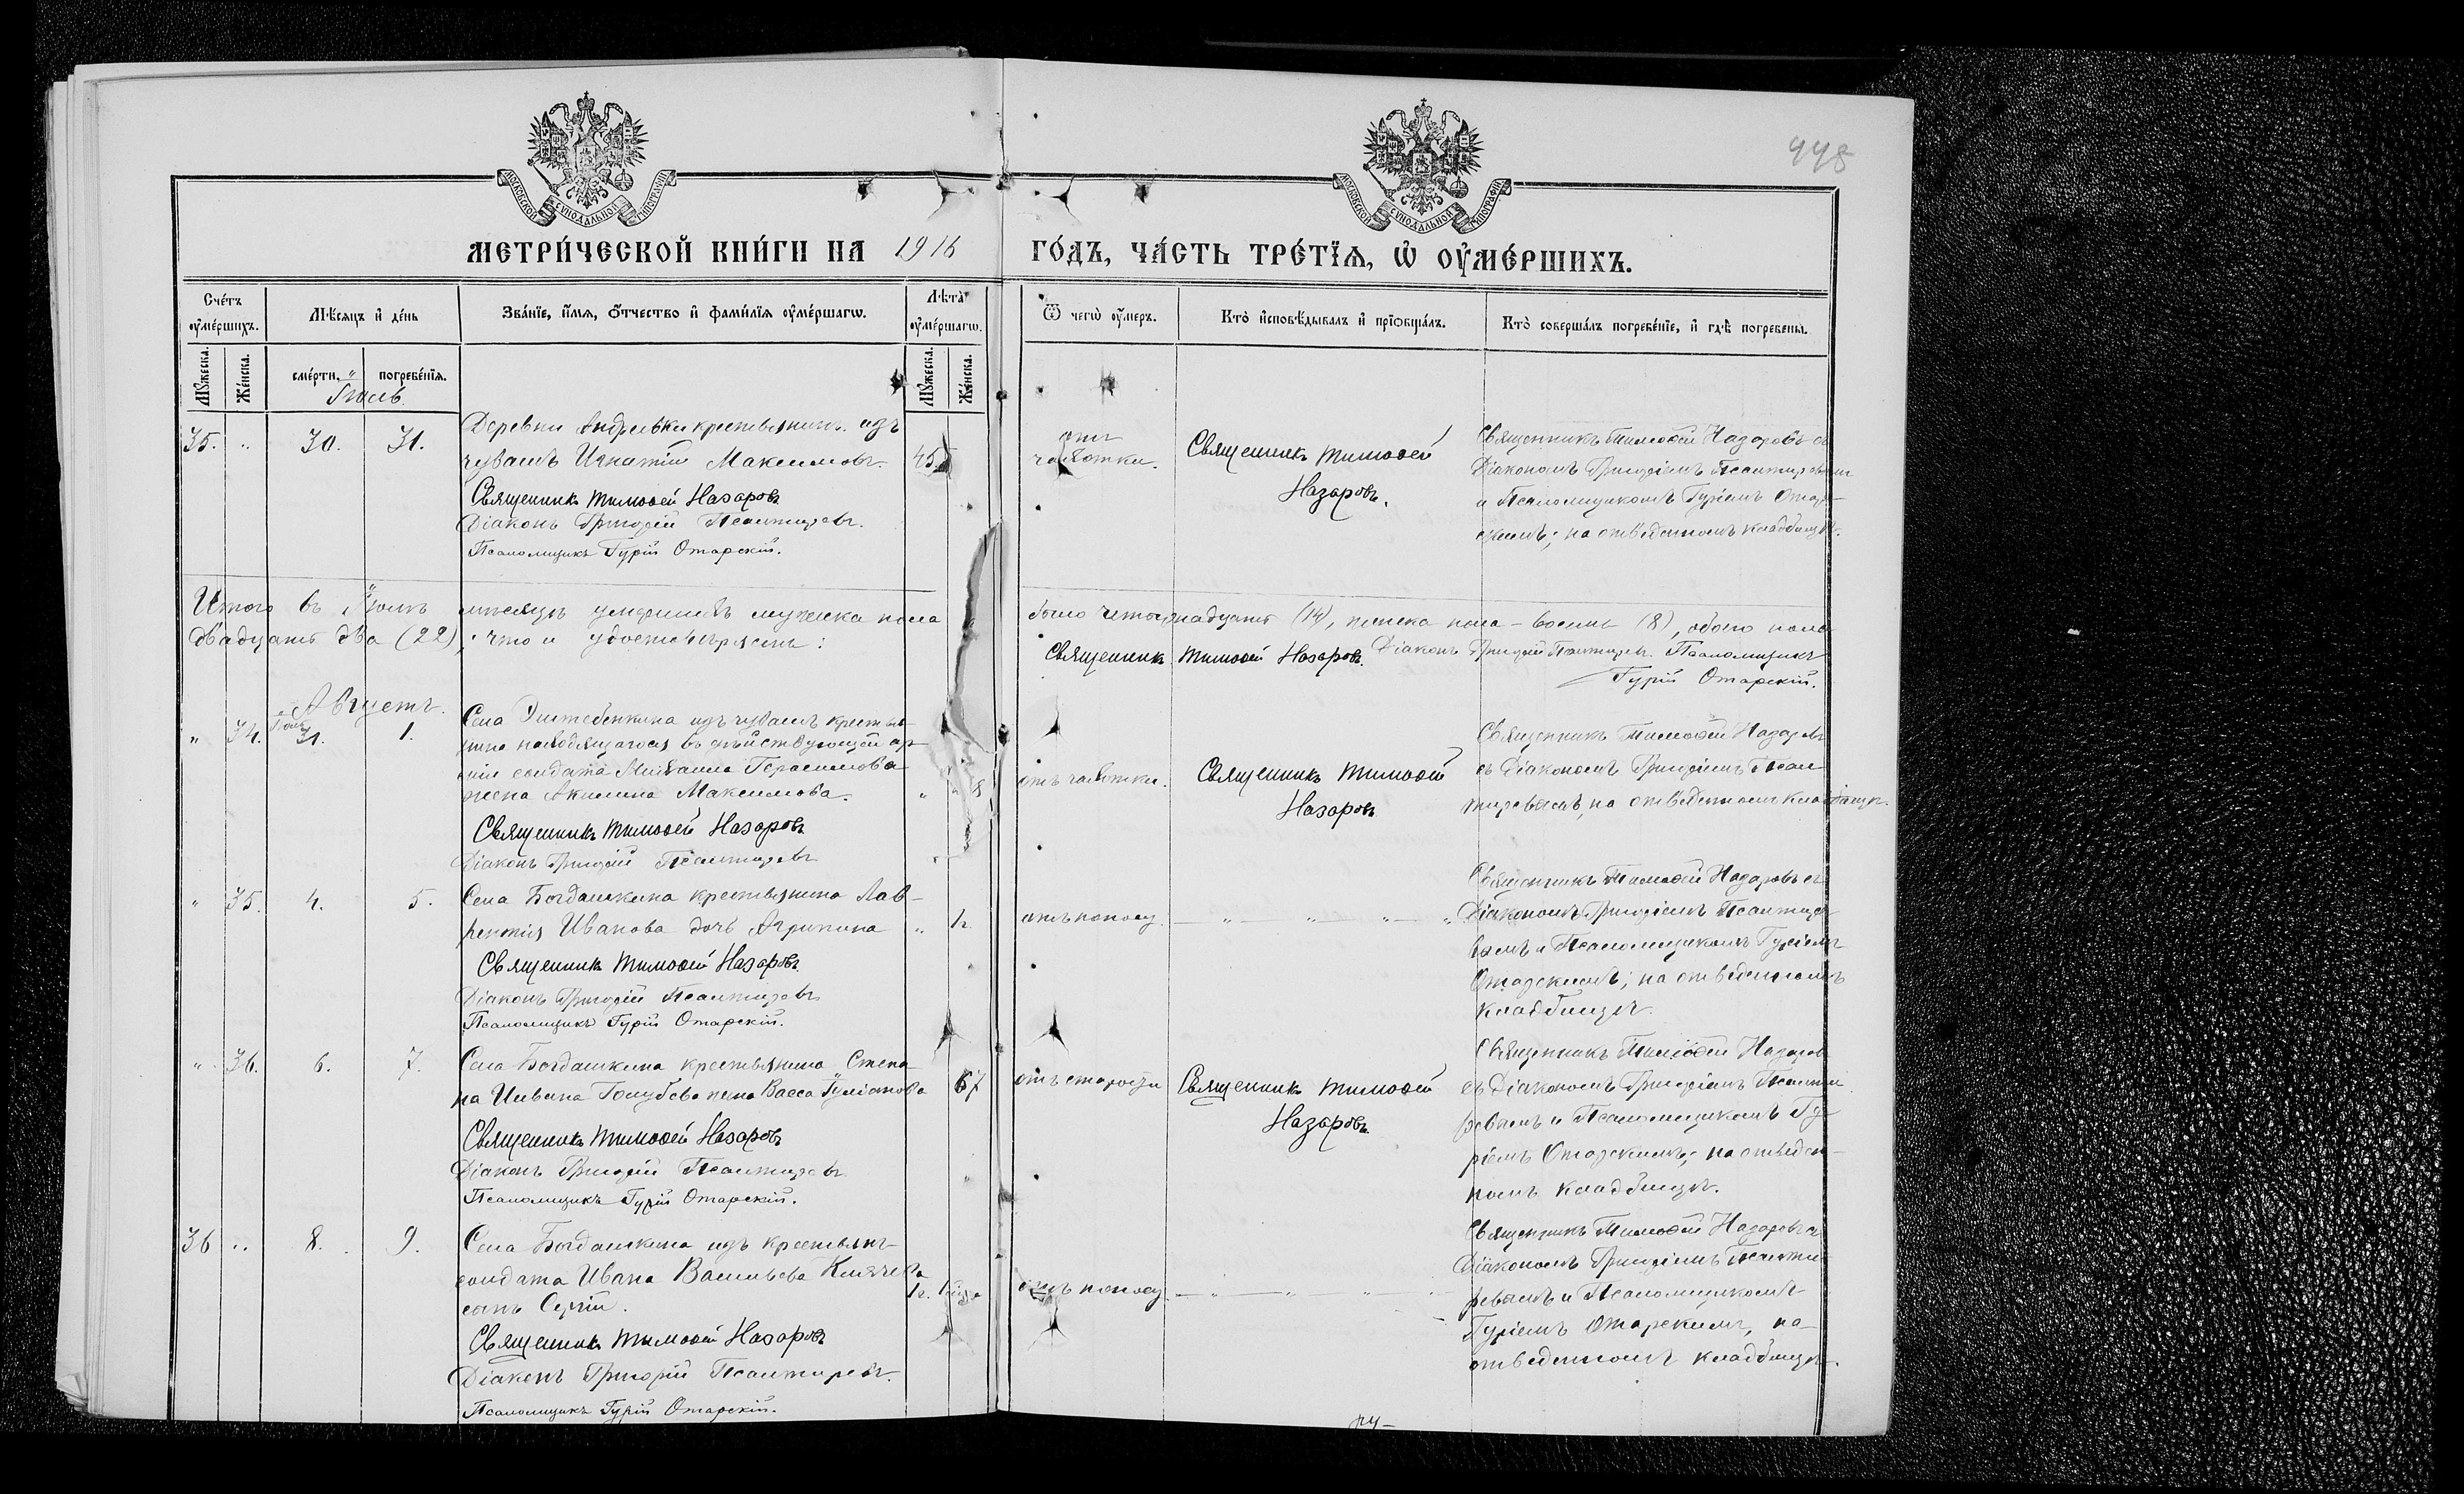 448
МОСКОВСКОЙ СУНОДАЛЬНОЙ ТИПОГРАФІИ
МОСКОВСКОЙ СУНОДАЛЬНОЙ ТИПОГРАФІИ
МЕТРИ́ЧЕСКОЙ КНИ́ГИ НА 1916 ГО́ДЪ, ЧА́СТЬ ТРЕ́ТЇѦ, Ѡ҆ ОУ҆МЕ́РШИХЪ.
Сче́тъ оу҆ме́ршихъ.
Мѣ́сяцъ и҆ де́нь
Зва́нїе, и҆́мѧ, ѻ҆́тчество и҆ фами́лїѧ оу҆ме́ршагѡ.
Лѣ́та оу҆ме́ршагѡ.
Ѿ чегѡ̀ оу҆́меръ.
Кто̀ и҆сповѣ́дывалъ и҆ прїѡбща́лъ.
Кто̀ соверша́лъ погребе́нїе, и҆ гдѣ̀ погребены̀.
Мꙋ́жеска. Же́нска. сме́рти. погребе́нїѧ. Мꙋ́жеска. Же́нска.
Іюль.
35. " 30. 31. Деревни Андреевки крестьянинъ изъ
чувашъ Игнатій Максимовъ. 45
Священникъ Тимоѳей Назаровъ
Діаконъ Григорій Псалтыревъ.
Псаломщикъ Гурій Отарскій.
отъ
чахотки.
Священникъ Тимоѳей
Назаровъ.
Священникъ Тимоѳей Назаровъ съ
Діакономъ Григоріемъ Псалтыревымъ
и Псаломщикомъ Гуріемъ Отар-
скимъ; на отведенномъ кладбищѣ.
Итого въ Іюлѣ мѣсяцѣ умершихъ мужеска пола было четырнадцать (14), женска пола - восемь (8), обоего пола
двадцать два (22); что и удостовѣряемъ:
Священникъ Тимоѳей Назаровъ. Діаконъ Григорій Псалтыревъ. Псаломщикъ
Гурій Отарскій.
Августъ.
" 34. Іюля 31. 1. Села Эштебенкина изъ чувашъ крестья-
нина находящагося въ дѣйствующей ар-
міи солдата Михаила Герасимова
жена Акилина Максимова.
Священникъ Тимоѳей Назаровъ
Діаконъ Григорій Псалтыревъ
отъ чахотки.
Священникъ Тимоѳей
Назаровъ
Священникъ Тимоѳей Назаровъ
съ Діакономъ Григоріемъ Псал-
тыревымъ, на отведенномъ кладбищѣ.
" 35. 4. 5. Села Богдашкина крестьянина Лав-
рентія Иванова дочь Агрипина
Священникъ Тимоѳей Назаровъ
Діаконъ Григорій Псалтыревъ
Псаломщикъ Гурій Отарскій.
отъ поносу
Священникъ Тимоѳей Назаровъ съ
Діакономъ Григоріемъ Псалтыре-
вымъ и Псаломщикомъ Гуріемъ
Отарскимъ; на отведенномъ
кладбищѣ.
" 36. 6. 7. Села Богдашкина крестьянина Степа-
на Голубева жена Васса 67
Священникъ Тимоѳей Назаровъ
Діаконъ Григорій Псалтыревъ
Псаломщикъ Гурій Отарскій.
отъ старости
Священникъ Тимоѳей
Назаровъ.
Священникъ Тимоѳей Назаровъ
съ Діакономъ Григоріемъ Псалты-
ревымъ и Псаломщикомъ Гу-
ріемъ Отарскимъ; на отведен-
номъ кладбищѣ.
36 " 8. 9. Села Богдашкина изъ крестьянъ
солдата Ивана Васильева
сынъ Сергій.
Священникъ Тимоѳей Назаровъ
Діаконъ Григорій Псалтыревъ.
Псаломщикъ Гурій Отарскій.
отъ поносу
Священникъ Тимоѳей Назаровъ съ
Діакономъ Григоріемъ Псалты-
ревымъ и Псаломщикомъ
Гуріемъ Отарскимъ, на
отведенномъ кладбищѣ.